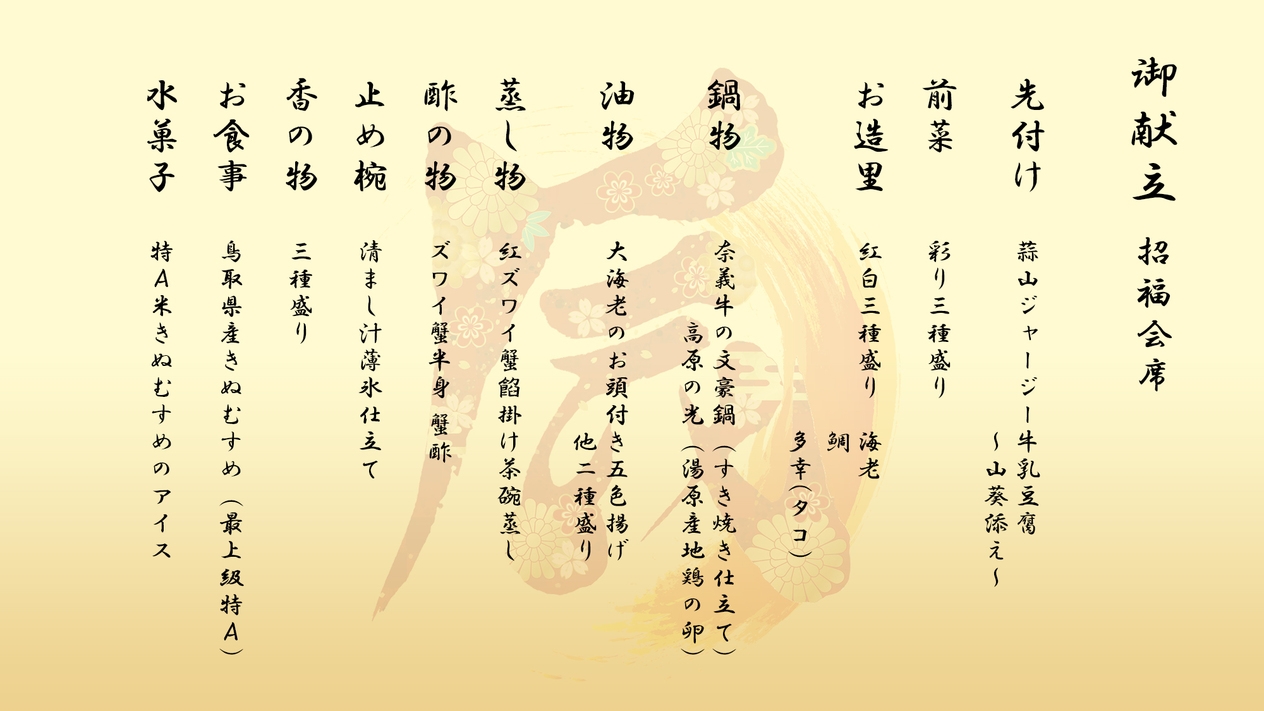 御献立 招福会席
先付け 蒜山ジャージー牛乳豆腐
～山葵添え～
前菜 彩り三種盛り
お造里 紅白三種盛り 海老
鯛
多幸(タコ)
鍋物 奈義牛の文豪鍋(すき焼き仕立て)
高原の光(湯原産地鶏の卵)
油物 大海老のお頭付き五色揚げ
他二種盛り
蒸し物 紅ズワイ蟹餡掛け茶碗蒸し
酢の物 ズワイ蟹半身 蟹酢
止め椀 清まし汁薄氷仕立て
香の物 三種盛り
お食事 鳥取県産きぬむすめ(最上級特A)
水菓子 特A米きぬむすめのアイス
辰